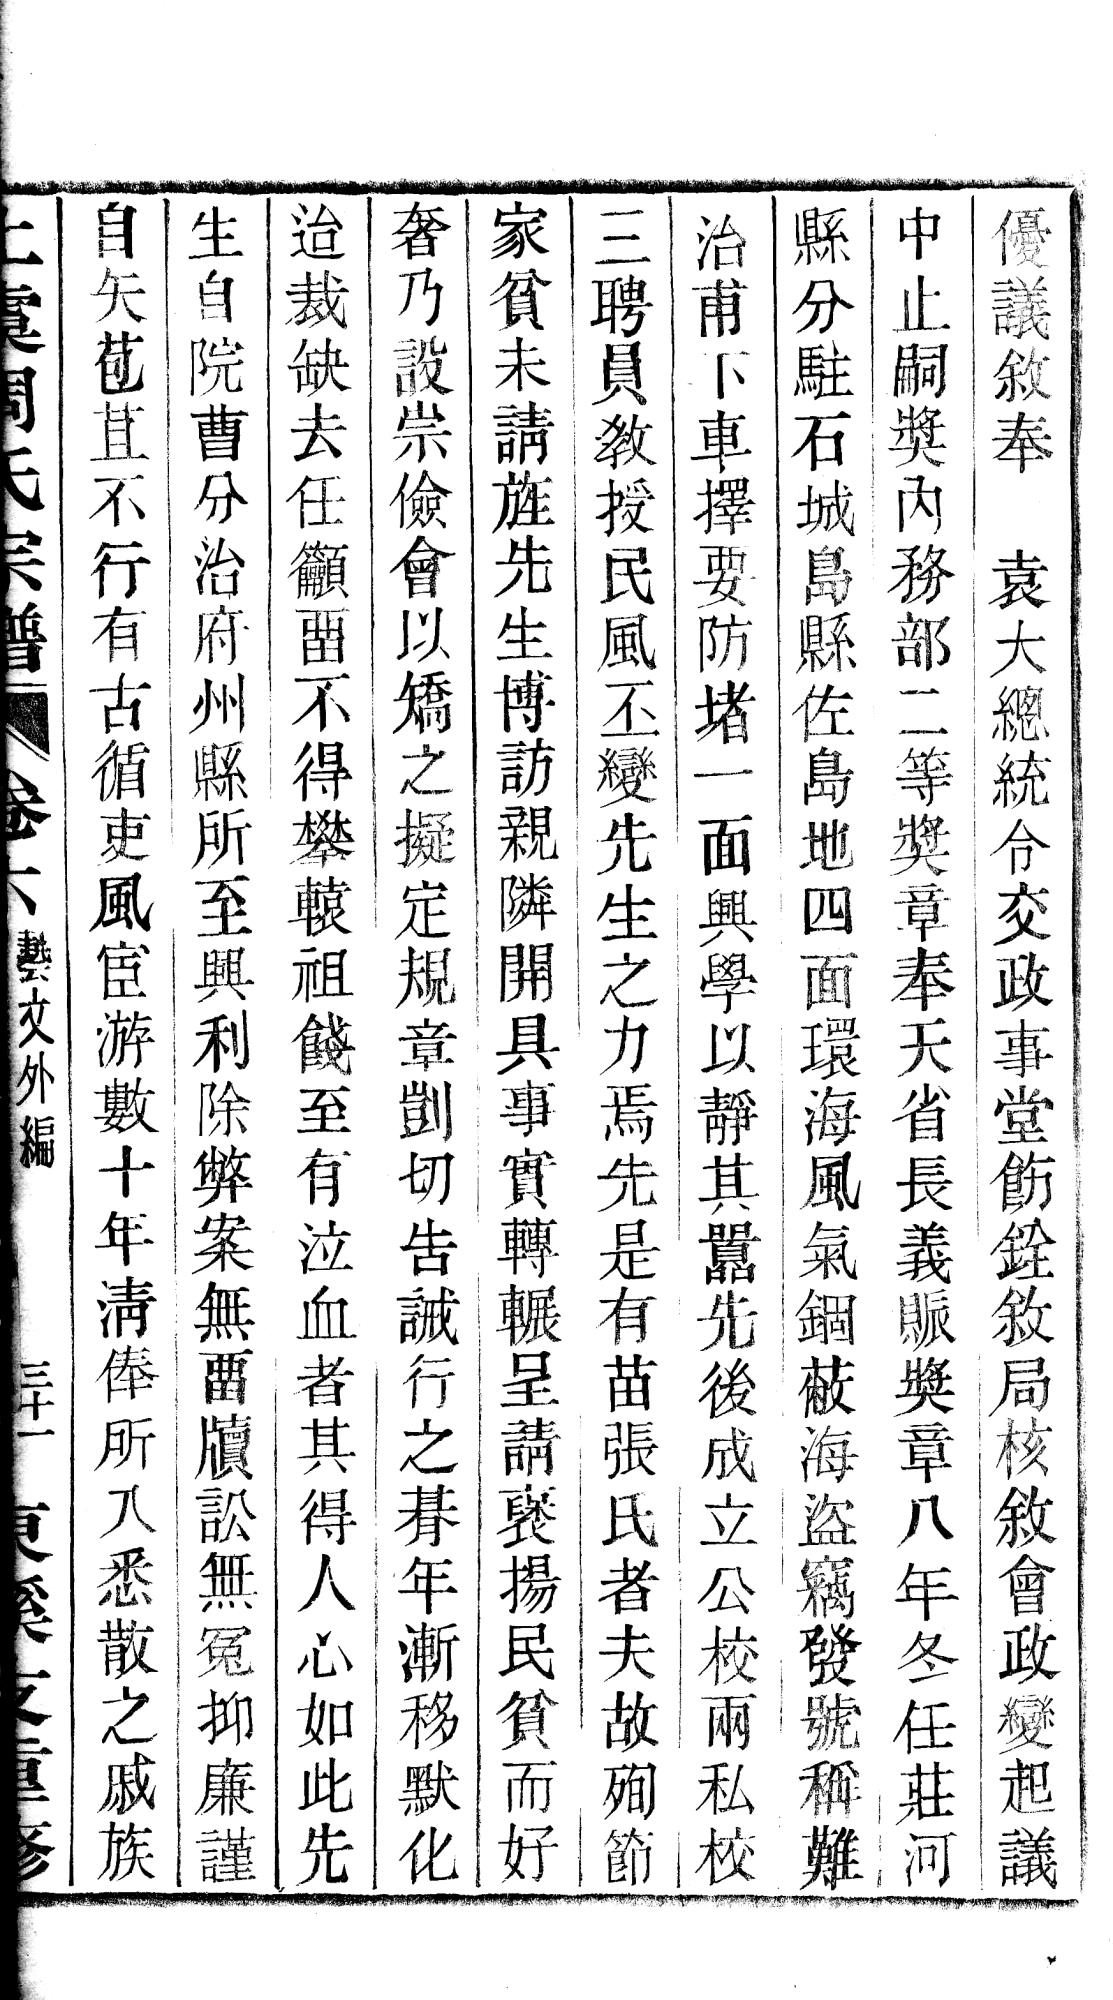 優議敘奉　袁大總統令交政事堂飭銓敘局核敘會政變起議
中止嗣奬內務部二等奬章奉天省長義賑奬章八年冬任莊河
縣分駐石城島縣佐島地四面環海風氣錮蔽海盜竊發號稱難
治甫下車擇要防堵一面興學以靜其囂先後成立公校兩私校
三聘員教授民風丕變先生之力焉先是有苗張氏者夫故殉節
家貧未請旌先生博訪親隣開具事實轉輾呈請褒揚民貧而好
奢乃設崇儉會以矯之擬定規章剴切告誡行之朞年漸移默化
迨裁缺去任籲畱不得攀轅祖餞至有泣血者其得人心如此先
生自院曹分治府州縣所至興利除弊案無畱牘訟無冤抑廉謹
自矢苞苴不行有古循吏風宦游數十年淸俸所入悉散之戚族
上虞周氏宗譜　卷六　藝文外編　三十一　東溪支重修